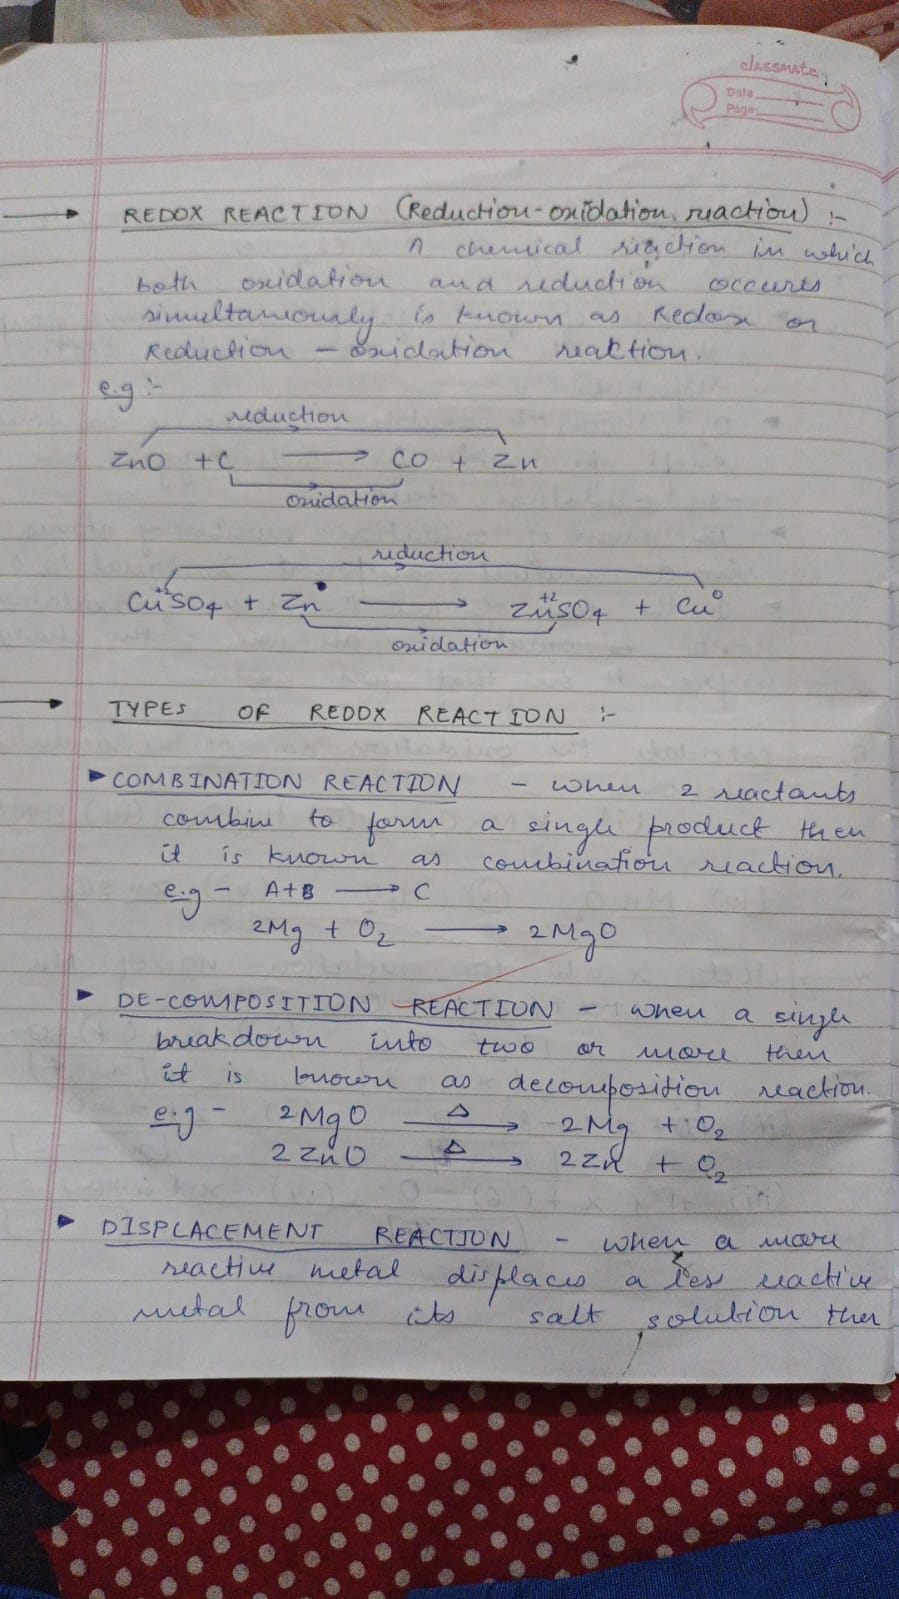 classmate
Date
Page
REDOX REACTION (Reduction-oxidation reaction) :-
A chemical reaction in which
both oxidation and reduction occures
simultaneously is known as Redox or
Reduction - oxidation reaktion.
e.g :-
reduction
ZnO + C ⟶ CO + Zn
oxidation
reduction
Cu⁺²SO4 + Zn ⟶ Zn⁺²SO4 + Cu⁰
oxidation
TYPES OF REDOX REACTION :-
COMBINATION REACTION - when 2 reactants
combine to form a single product then
it is known as combination reaction.
e.g - A+B ⟶ C
2Mg + O₂ ⟶ 2MgO
DE-COMPOSITION REACTION - when a single
breakdown into two or more then
it is known as decomposition reaction.
e.g - 2MgO Δ⟶ 2Mg + O₂
2ZnO Δ⟶ 2Zn + O₂
DISPLACEMENT REACTION - when a more
reactive metal displaces a less reactive
metal from its salt solution then